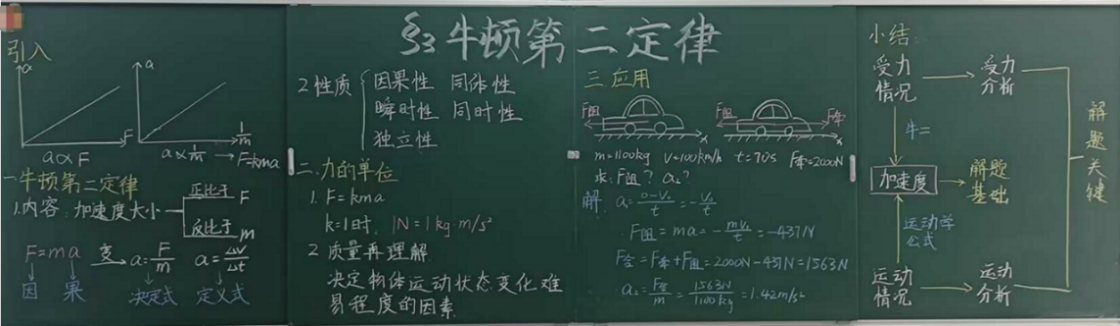 §3 牛顿第二定律
引入
a
a
F
1/m
a∝F
a∝1/m → F=kma
一 牛顿第二定律
1.内容: 加速度大小
正比于 F
反比于 m
F=ma 变→ a=F/m a=ΔV/Δt
因 果 决定式 定义式
2 性质
因果性 同体性
瞬时性 同时性
独立性
二. 力的单位
1. F=kma
k=1时, 1N=1kg·m/s²
2 质量再理解
决定物体运动状态变化难
易程度的因素
三 应用
F阻
x
F阻 F牵
x
m=1100kg V=100km/h t=70s F牵=2000N
求: F阻? a₂?
解 a=(0-V₀)/t=-V₀/t
F阻=ma=-mV₀/t=-437N
F合=F牵+F阻=2000N-437N=1563N
a₂=F合/m=1563N/1100kg=1.42m/s²
小结:
受力情况 → 受力分析
牛二
加速度 → 解题基础
运动学公式
运动情况 → 运动分析
解题关键